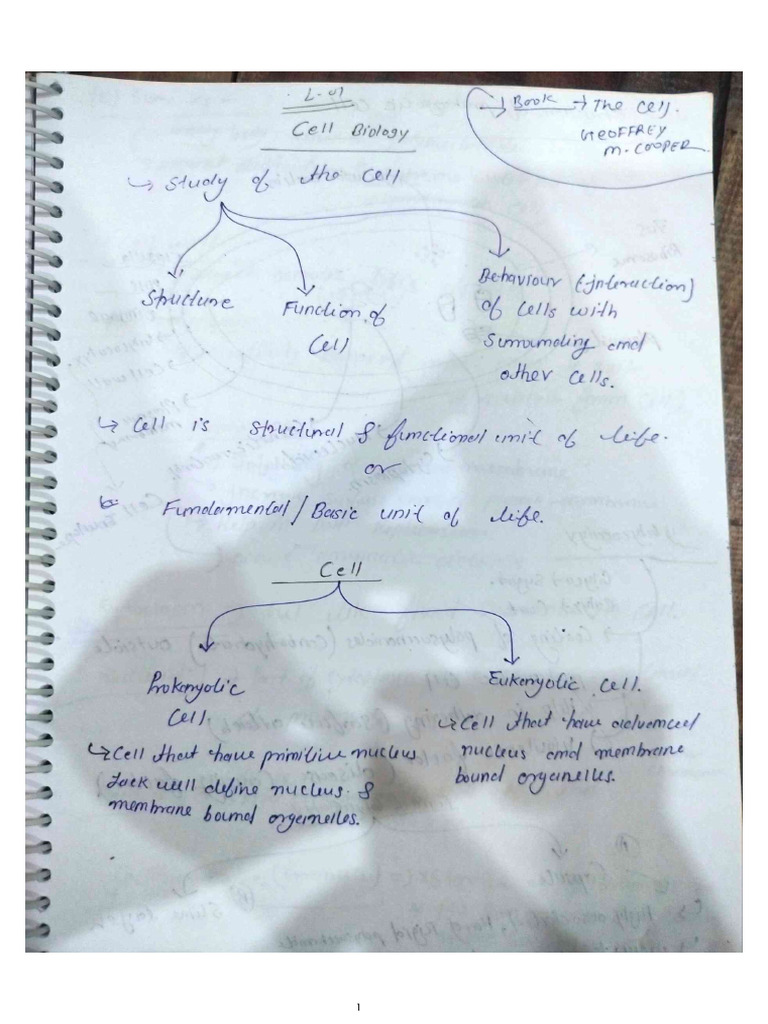 L-01
Cell Biology
Book → The Cell.
GEOFFREY
M. COOPER
↳ Study of the Cell
Structure
Function of
Cell
Behaviour (Interaction)
of Cells with
Surrounding and
other Cells.
↳ Cell is structural & functional unit of life.
or
Fundamental / Basic unit of life.
Cell
Prokaryotic
Cell.
↳ Cell that have primitive nucleus
Lack well define nucleus &
membrane bound organelles.
Eukaryotic Cell.
↳ Cell that have advanced
nucleus and membrane
bound organelles.
1